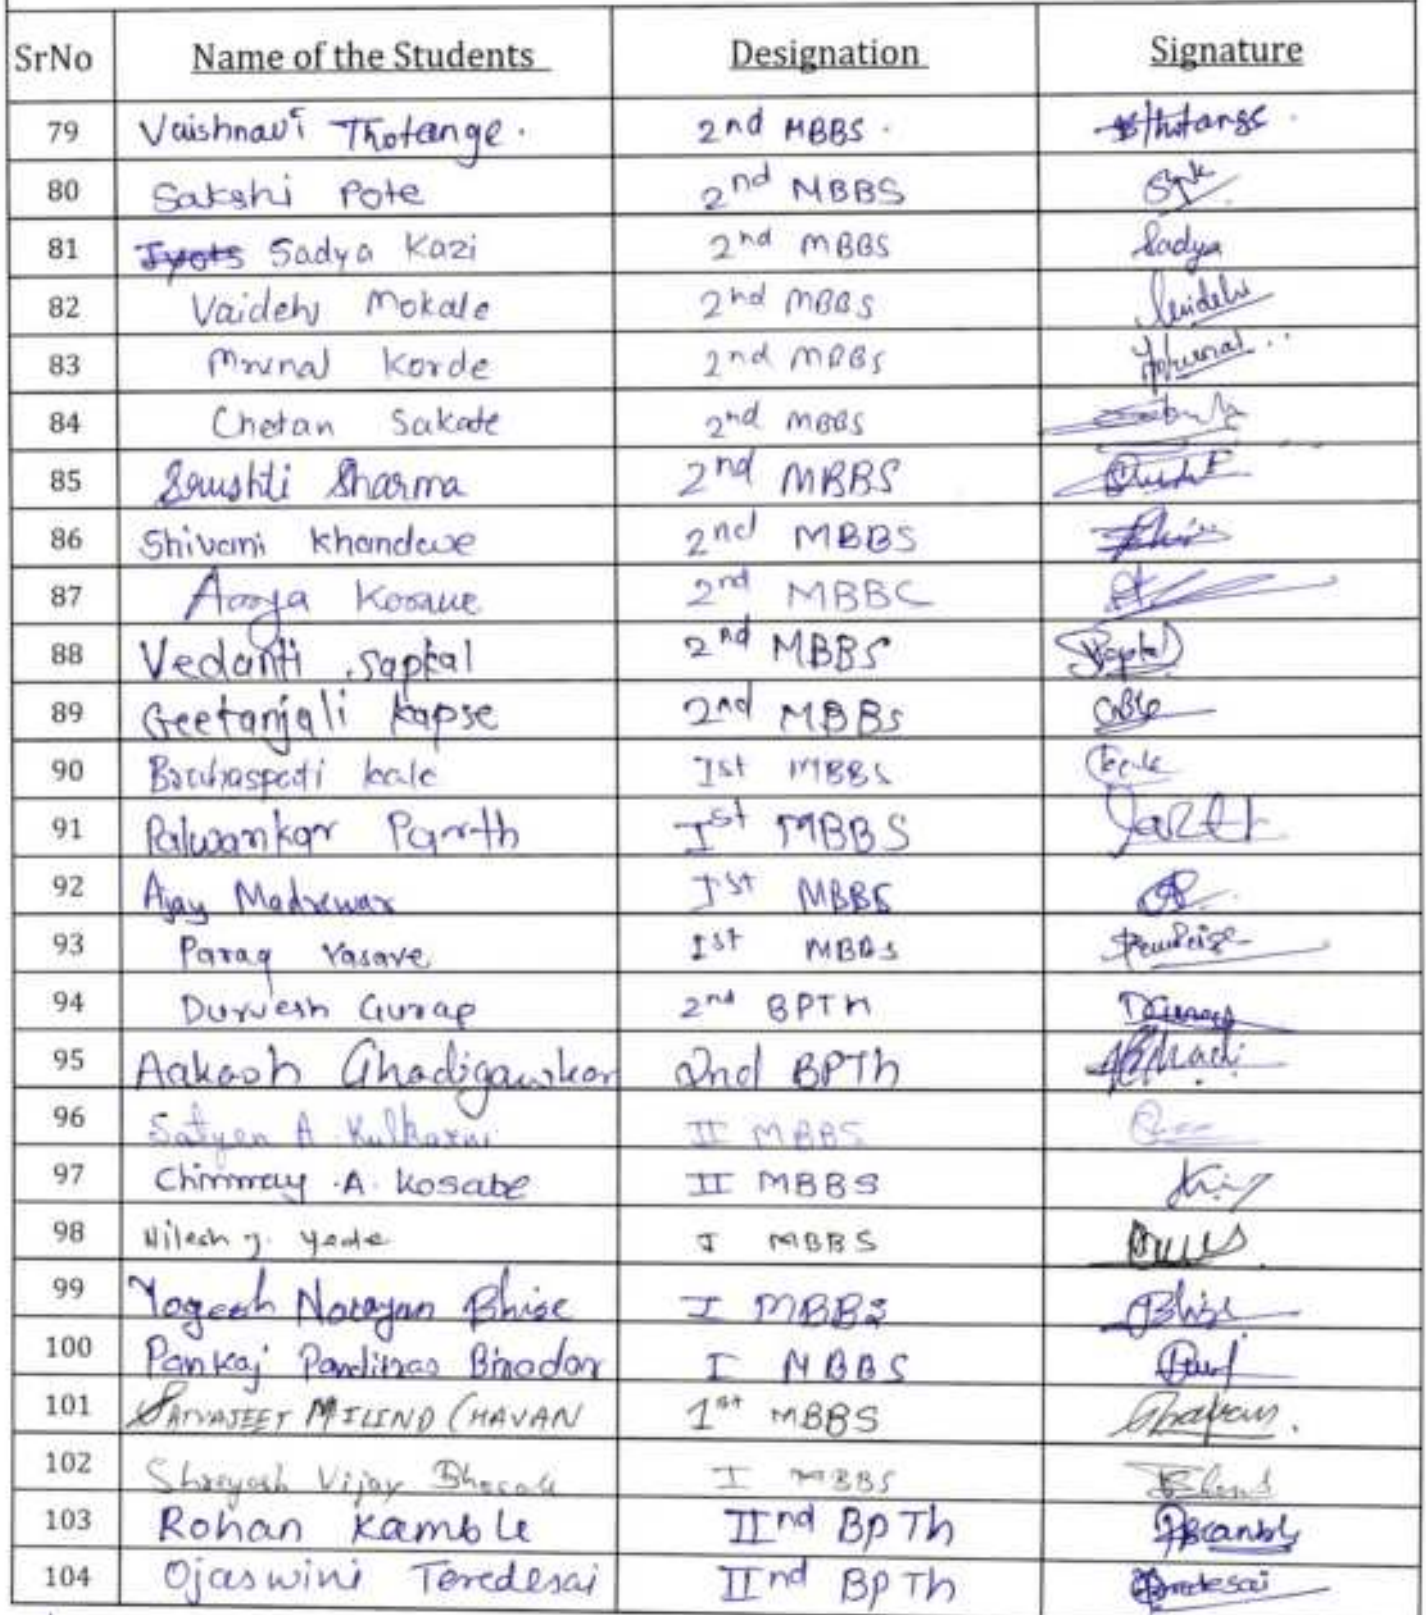 SrNo Name of the Students Designation Signature
79 Vaishnavi Thotange. 2nd MBBS. Thotange.
80 Sakshi Pote 2nd MBBS
81 Jyots Sadya Kazi 2nd MBBS Sadya
82 Vaidehi Mokale 2nd MBBS Vaidehi
83 Mrunal Korde 2nd MBBS Mrunal..
84 Chetan Sakate 2nd MBBS
85 Srushti Sharma 2nd MBBS
86 Shivani Khandave 2nd MBBS
87 Aarya 2nd MBBC
88 Vedanti Sapkal 2nd MBBS Sapkal
89 Geetanjali Kapse 2nd MBBS
90 kale Ist MBBS
91 Palwankar Parth Ist MBBS Parth
92 Ajay Madrewar Ist MBBS
93 Parag Vasave Ist MBBS
94 Durvesh Gurap 2nd BPTh DGurap
95 Aakash Ghadigawkar 2nd BPTh Ghadi
96 Satyen A. Kulkarni II MBBS
97 Chinmay .A. Kosabe II MBBS
98 Nilesh J. Yede I MBBS
99 Yogesh Narayan Bhise I MBBS Bhise
100 Pankaj Panditrao Biradar I MBBS
101 SATYAJEET MILIND CHAVAN 1st MBBS Chavan.
102 Shreyash Vijay I MBBS
103 Rohan Kamble IInd BpTh Kamble
104 Ojaswini Teredesai IInd BpTh Teredesai